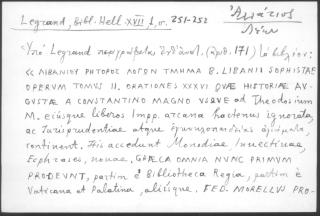 Legrand, Bibl. Hell. XVII, 1, σ. 251-252
Ἀλλάτιος
Λέων
Ὑπὸ Legrand περιγράφεται (ἀρθ. 171) τὸ βιβλίον:
« ΛΙΒΑΝΙΟΥ ΡΗΤΟΡΟΣ ΛΟΓΩΝ ΤΜΗΜΑ Β. LIBANII SOPHISTAE
OPERUM TOMUS II. ORATIONES XXXVI QUAE HISTORIAE AU-
GUSTAE A CONSTANTINO MAGNO USQUE ad Theodosium
M. eiusque liberos Imp. arcana hactenus ignorata,
ac Iurisprudentiae atque
continent. His accedunt Monodiae Invectivae,
Ecphrases, novae, GRAECA OMNIA NUNC PRIMUM
PRODEUNT, partim è Bibliotheca Regia, partim è
Vaticana et Palatina, aliisque. FED. MORELLUS PRO-